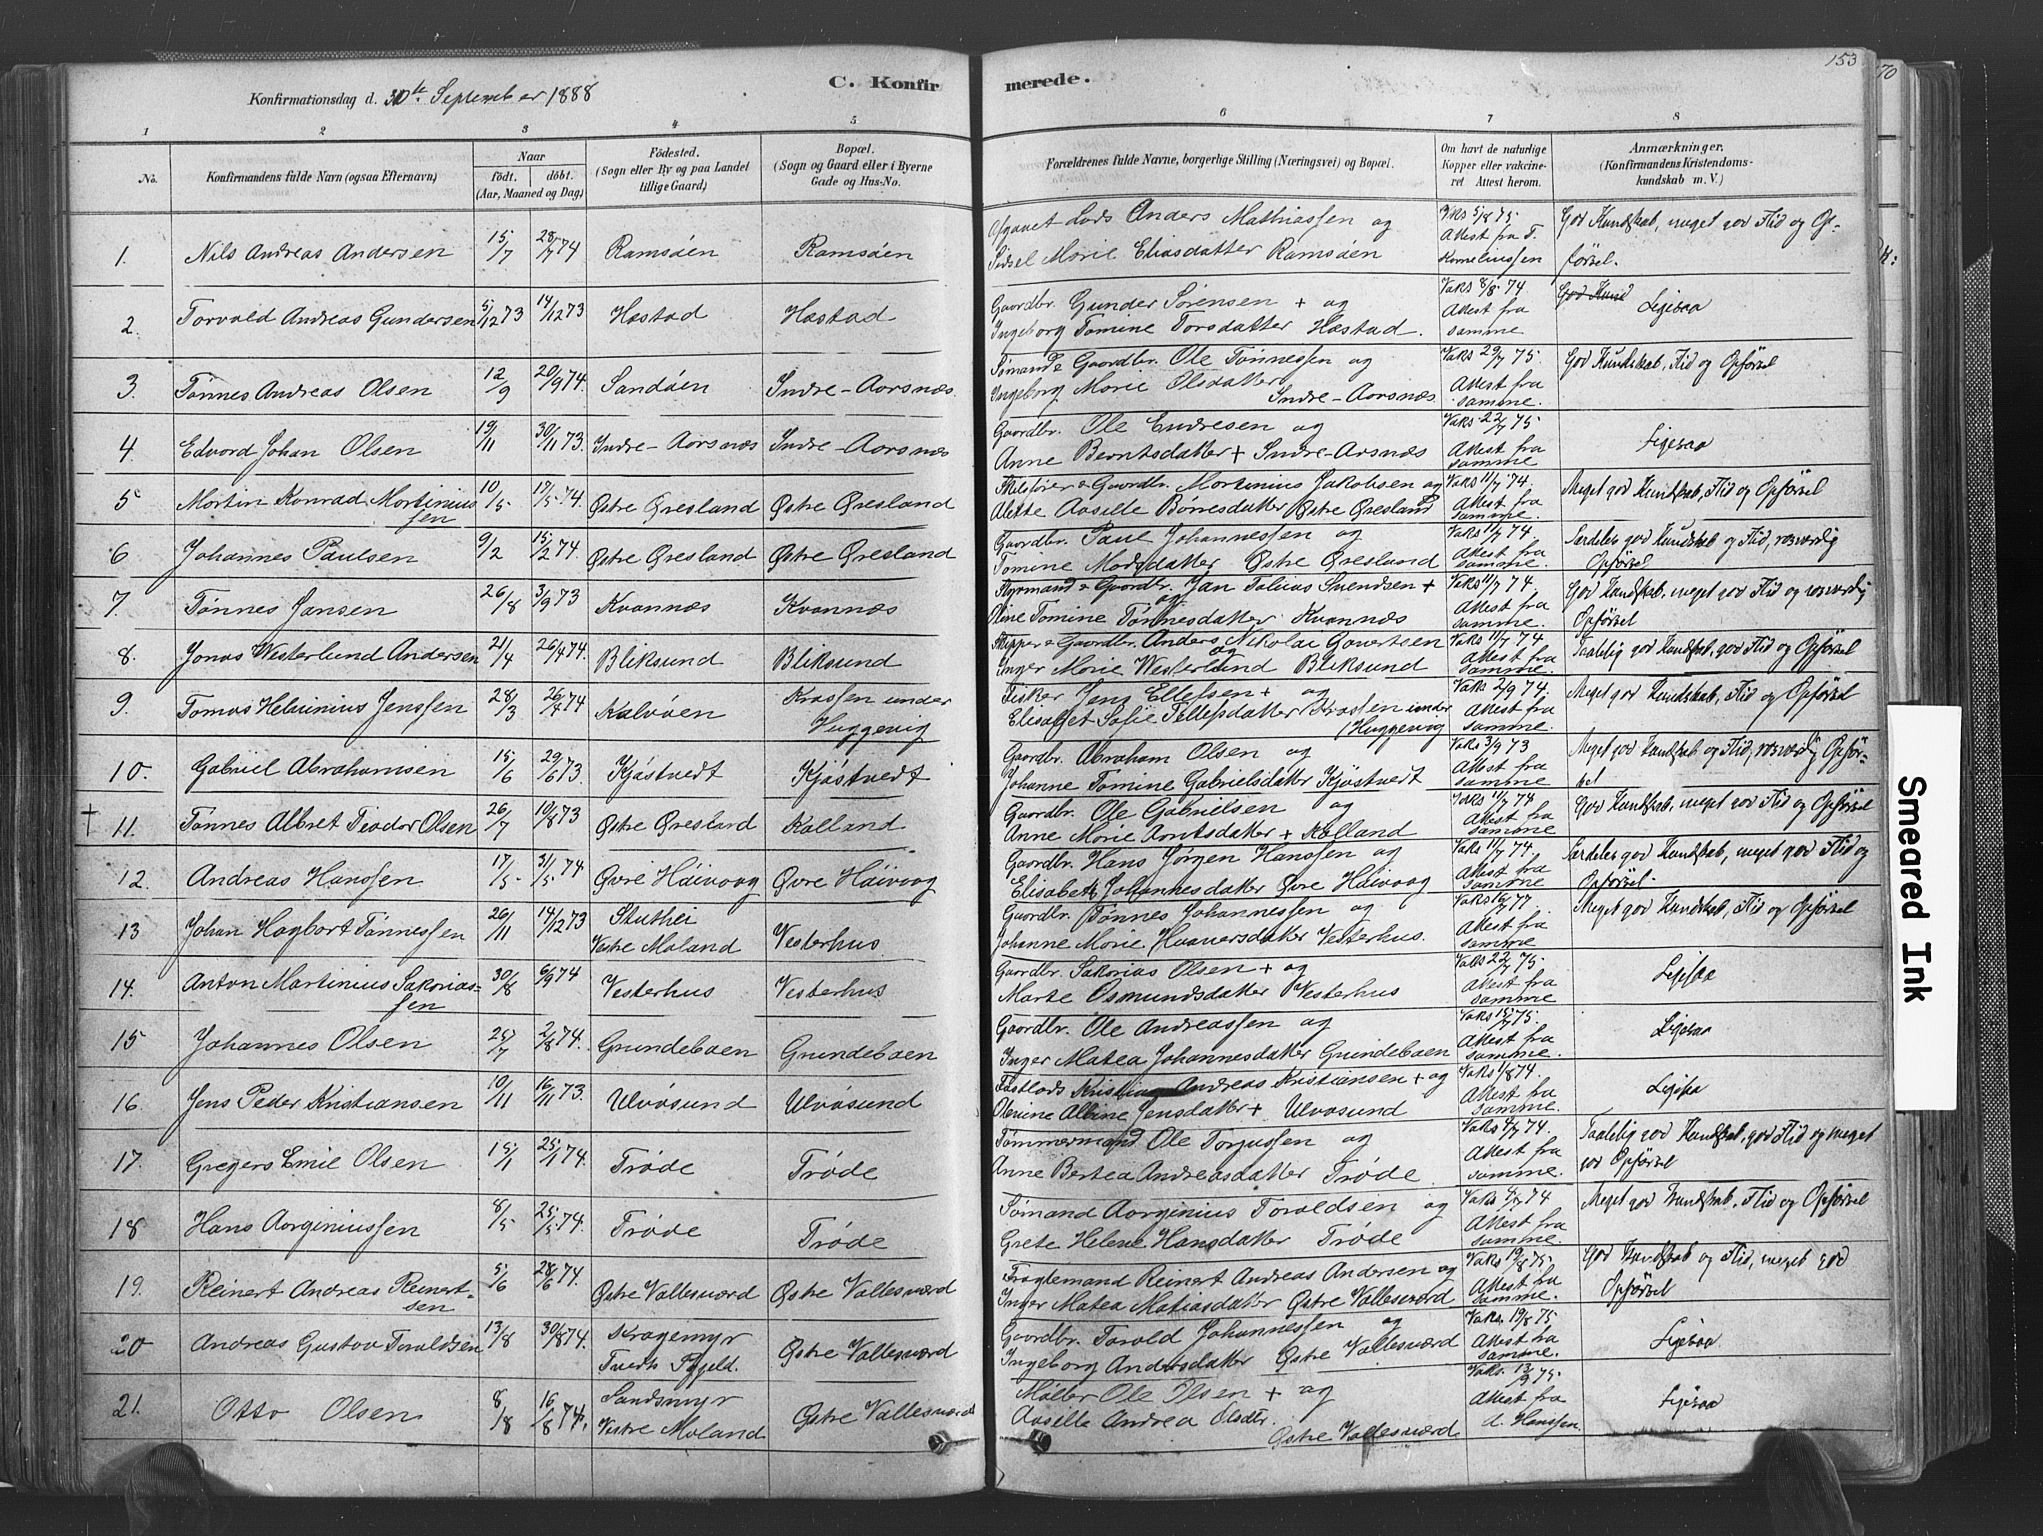 153
170
Konfirmationsdag d. 30te September 1888
C. Konfirmerede.
1 2 3 4 5 6 7 8
No.
Konfirmandens fulde Navn (ogsaa Efternavn)
Naar
födt. döbt.
(Aar, Maaned og Dag)
Födested.
(Sogn eller By og paa Landet
tillige Gaard)
Bopæl.
(Sogn og Gaard eller i Byerne
Gade og Hus-No.
Forældrenes fulde Navne, borgerlige Stilling (Næringsvei) og Bopæl.
Om havt de naturlige
Kopper eller vakcine-
ret Attest herom.
Anmærkninger.
(Konfirmandens Kristendoms-
kundskab m. V.)
1. Nils Andreas Andersen 15/7 28/7 74 Ramsöen Ramsöen
Afgaaet Lods Anders Mathiassen og
Sidsel Marie Eliasdatter Ramsöen
Vaks 5/8 75
Attest fra T.
Korneliussen
God Kundskab, meget god Flid og Op-
försel.
2. Torvald Andreas Gundersen 5/12 73 14/12 73 Hæstad Hæstad
Gaardbr. Gunder Sörensen + og
Ingeborg Tomine Torsdatter Hæstad.
Vaks 8/8 74
Attest fra
samme
God Kund Ligesaa
3. Tönnes Andreas Olsen 12/9 20/9 74. Sandöen Indre-Aarsnæs
Sömand & Gaardbr. Ole Tönnessen og
Ingeborg Marie Olsdatter
Indre-Aarsnæs
Vaks 29/7 75.
Attest fra
samme.
God Kundskab, Flid og Opförsel
4 Edvard Johan Olsen 19/11 30/11 73. Indre-Aarsnæs Indre-Aarsnæs
Gaardbr. Ole Endresen og
Anne Berntsdatter + Indre-Aarsnæs
Vaks 22/7 75
Attest fra
samme
Ligesaa
5 Martin Konrad Martinius
sen 10/5 17/5 74. Østre Øresland Østre Øresland
Skibsfører & Gaardbr. Martinius Jakobsen og
Alette Aaselle Börresdatter Østre Øresland
Vaks 11/7 74.
Attest fra
samme
Meget god Kundskab, Flid og Opförsel
6 Johannes Paulsen 9/2 15/2 74. Østre Øresland Østre Øresland
Gaardbr. Paul Johannessen og
Tomine Madsdatter Østre Øresland
Vaks 11/7 74
Attest fra
samme.
Særdeles god Kundskab og Flid, rosværdig
Opförsel
7. Tönnes Jansen 26/8 3/9 73 Kvannæs Kvannæs
Styrmand & Gaardbr. Jan Tobias Svendsen +
og
Oline Tomine Tönnesdatter Kvannæs
Vaks 11/7 74
Attest fra
samme.
God Kundskab, meget god Flid og rosværdig
Opförsel
8. Jonas Westerlund Andersen 21/4 26/4 74. Bliksund Bliksund
Skipper & Gaardbr. Anders Nikolai Govertsen
og
Inger Marie Westerlund Bliksund
Vaks 11/7 74
Attest fra
samme.
Taalelig god Kundskab, god Flid og Opförsel
9. Tomas Helminius Jenssen 28/3 26/4 74 Kalvöen Krossen under
Huggevig
Fisker Jens Ellefsen + og
Elisabet Sofie Tellefsdatter Krossen under
Huggevig
Vaks 2/9 74.
Attest fra
samme.
Meget god Kundskab, Flid og Opförsel
10. Gabriel Abrahamsen 15/6 29/6 73. Kjöstvedt Kjöstvedt
Gaardbr. Abraham Olsen og
Johanne Tomine Gabrielsdatter Kjöstvedt
Vaks 3/9 73
Attest fra
samme
Meget god Kundskab og Flid, rosværdig Opför-
sel
† 11. Tönnes Albret Teodor Olsen 26/7 10/8 73 Østre Øresland Kalland
Gaardbr. Ole Gabrielsen og
Anne Marie Arntsdatter + Kalland
Vaks 11/7 74
Attest fra
samme
God Kundskab, meget god Flid og Opförsel
12. Andreas Hanssen 17/5 31/5 74. Øvre Häivaag Øvre Häivaag
Gaardbr. Hans Jörgen Hanssen og
Elisabeth Johannesdatter Øvre Häivaag
Vaks 11/7 74.
Attest fra
samme
Særdeles god Kundskab, meget god Flid og
Opförsel.
13 Johan Hagbart Tönnessen 26/11 14/12 73 Stuthei
Vestre Moland Vesterhus
Gaardbr. Tönnes Johannessen og
Johanne Marie Hvaversdatter Vesterhus.
Attest fra
samme
Meget god Kundskab, Flid og Opförsel
14. Anton Martinius Sakarias-
sen 30/8 6/9 74 Vesterhus Vesterhus
Gaardbr. Sakarias Olsen + og
Marte Osmundsdatter Vesterhus
Vaks 22/7 75.
Attest fra
samme
Ligesaa
15 Johannes Olsen 25/7 2/8 74. Grundebaen Grundebaen
Gaardbr. Ole Andreassen og
Inger Matea Johannesdatter Grundebaen
Vaks 15/7 75.
Attest fra
samme.
Ligesaa
16 Jens Peder Kristiansen 10/11 16/11 73. Ulvösund Ulvösund
Fastlods Kristian Andreas Kristiansen + og
Olevine Albine Jensdatter + Ulvösund
Vaks 1/8 74.
Attest fra
samme.
Ligesaa
17. Gregers Emil Olsen 15/1 25/1 74. Tröde Tröde
Tömmermand Ole Torjussen og
Anne Bertea Andreasdatter Tröde.
Vaks 4/7 74.
Attest fra
samme.
Taalelig god Kundskab, god Flid og meget
god Opförsel
18 Hans Aorginiussen 8/5 25/5 74. Tröde Tröde
Sömand Aorginius Toraldsen og
Grete Helene Hansdatter Tröde
Attest fra
samme.
Meget god Kundskab, Flid og Opförsel
19. Reinert Andreas Reinert-
sen 5/6 28/6 74. Østre Vallesværd Østre Vallesværd
Fragtemand Reinert Andreas Andersen og
Inger Matea Matiasdatter Østre Vallesværd
Vaks 19/8 75.
Attest fra
samme.
God Kundskab og Flid, meget god
Opförsel
20 Andreas Gustav Toraldsen 13/8 30/8 74. Kragemyr
Tveds Fjeld. Østre Vallesværd
Gaardbr. Torald Johannessen og
Ingeborg Andersdatter Østre Vallesværd
Vaks. 19/8 75
Attest fra
samme.
Ligesaa
21. Otto Olsen 8/8 16/8 74. Sandsmyr
Vestre Moland Østre Vallesværd
Møller Ole Olsen + og
Aaselle Andrea Olsdtr.
Østre Vallesværd
Vaks. 13/9 75
Attest fra
A. Hanssen.
Ligesaa
Smeared Ink